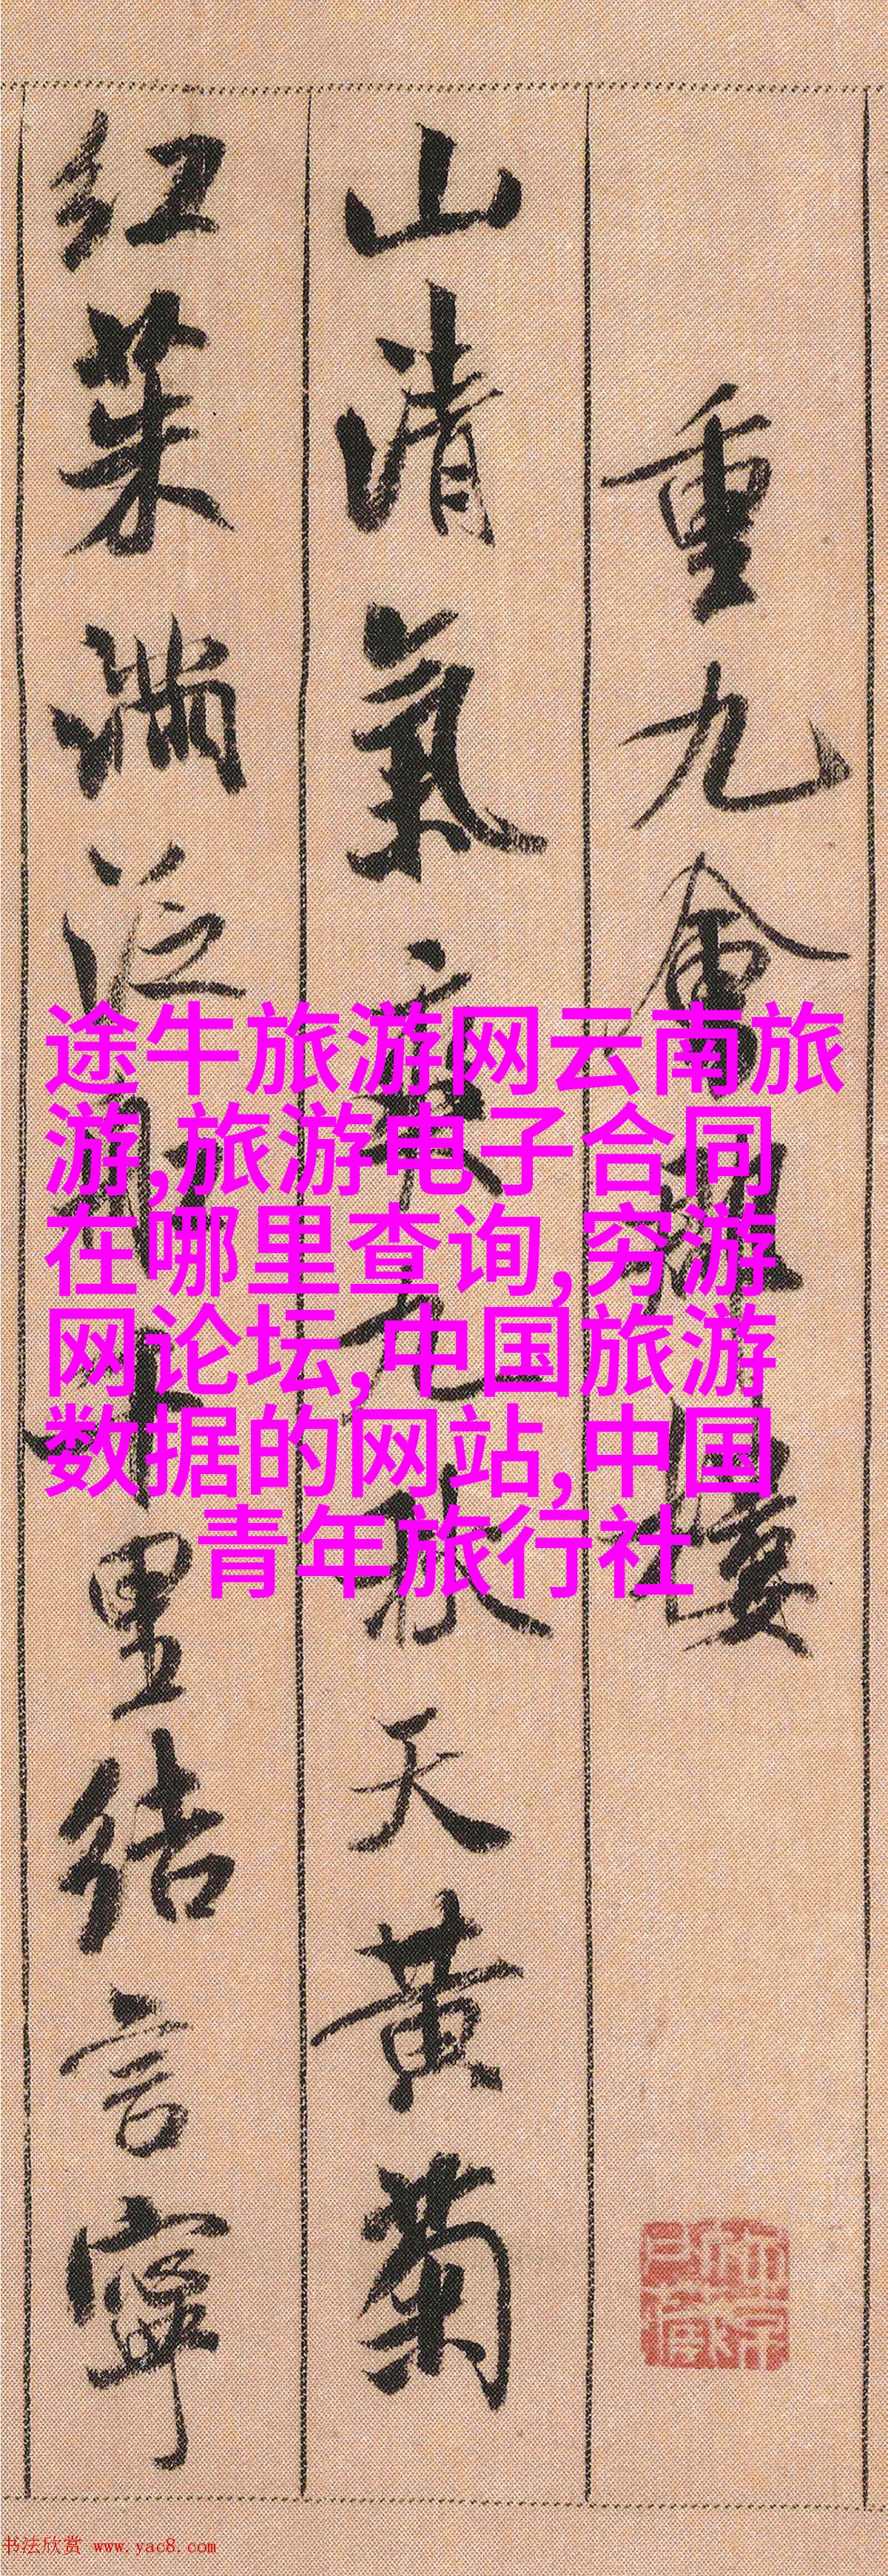 重九會郡樓
山清氣爽九秋天黃菊
紅茱滿泛船千里結言寧
途牛旅游网云南旅
游,旅游电子合同
在哪里查询,穷游
网论坛,中国旅游
数据的网站,中国
青年旅行社
书法欣赏 www.yac8.com